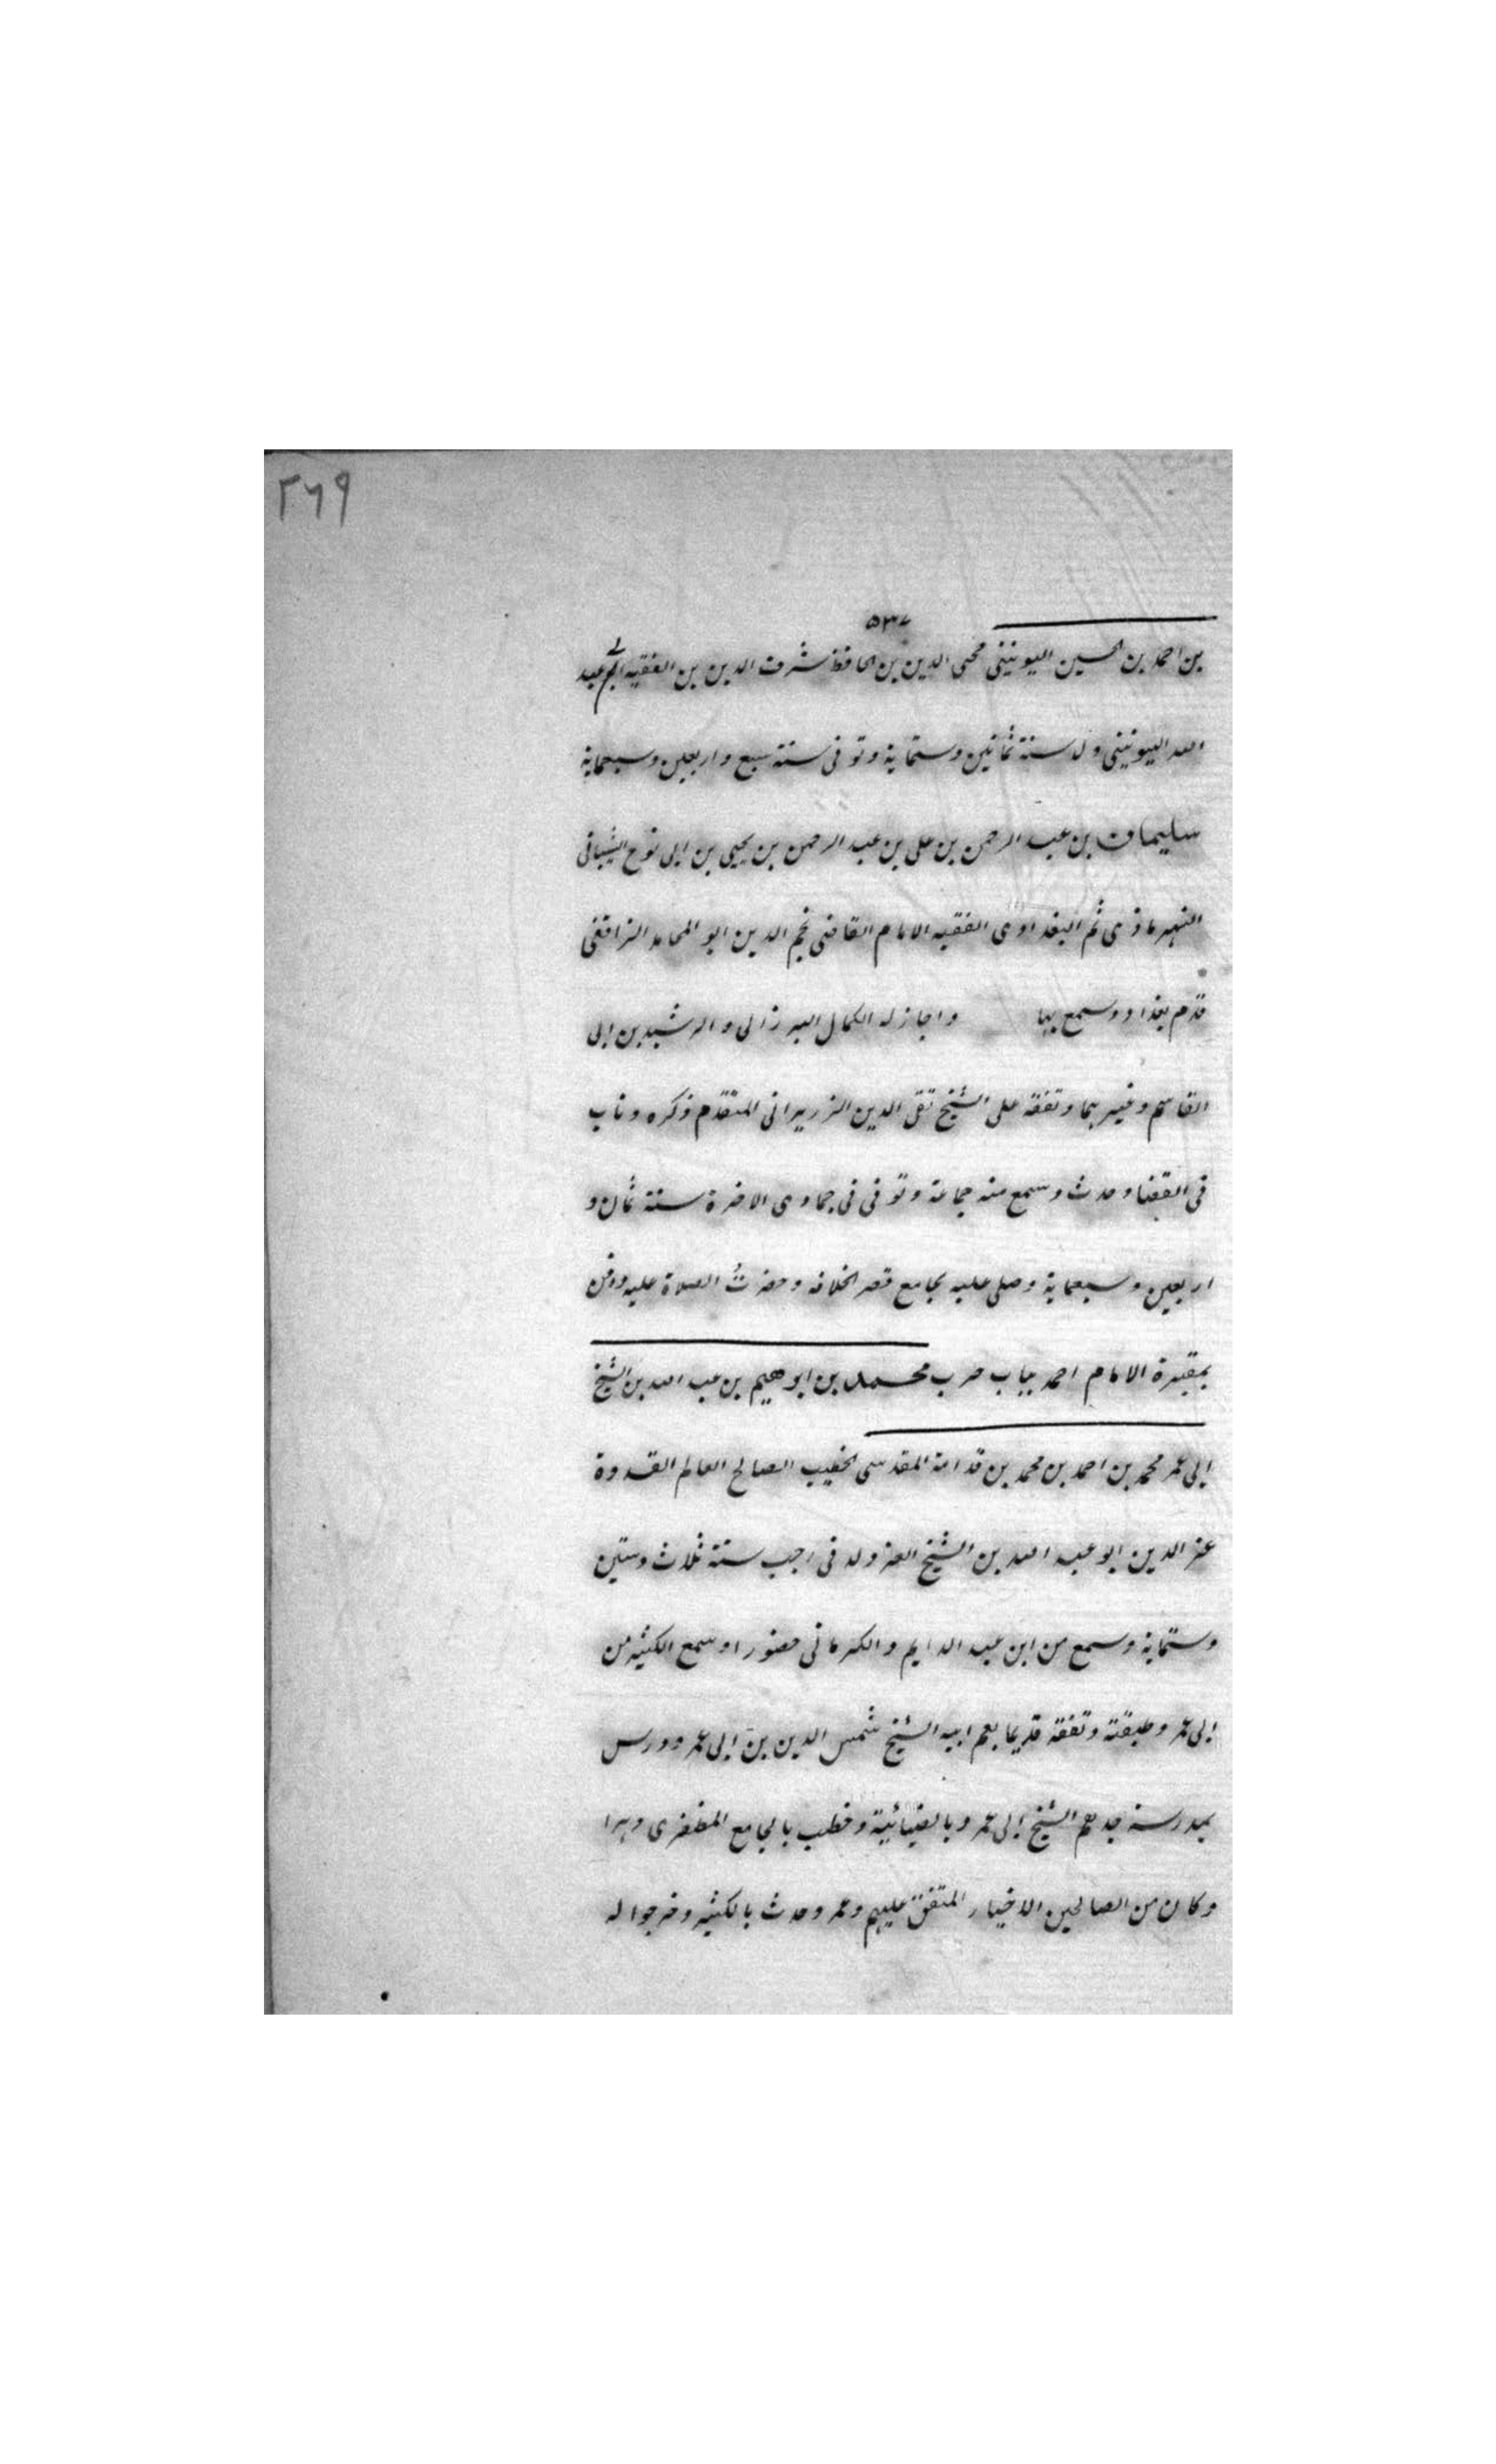 ٢٦٩
٥٣٧
بن احمد بن الحسين اليونينى محيى الدين بن الحافظ شرف الدين بن الفقيه ابى عبد
الله اليونينى ولد سنة ثمانين وستماية وتوفى سنة سبع واربعين وسبعماية
سليمان بن عبد الرحمن بن على بن عبد الرحمن بن يحيى بن ابى نوح الشيبانى
النهرمارى ثم البغدادى الفقيه الامام القاضى نجم الدين ابو المحامد
قدم بغداد وسمع بها واجاز له الكمال البرزالى والرشيد بن ابى
القاسم وغيرهما وتفقه على الشيخ تقى الدين الزريرانى المتقدم ذكره وناب
فى القضا وحدث وسمع منه جماعة وتوفى فى جمادى الاخرة سنة ثمان و
اربعين وسبعماية وصلى عليه بجامع قصر الخلافه وحضرتُ الصلاة عليه ودفن
بمقبرة الامام احمد بباب حرب محمد بن ابرهيم بن عبد الله بن الشيخ
ابى عمر محمد بن احمد بن محمد بن قدامة المقدسى الخطيب الصالح العالم القدوة
عز الدين ابو عبد الله بن الشيخ العز ولد فى رجب سنة ثلاث وستين
وستماية وسمع من ابن عبد الدايم والكرمانى حضورا وسمع الكثير من
ابى عمر وطبقته وتفقه قديما بعم ابيه الشيخ شمس الدين بن ابى عمر ودرس
بمدرسة جدهم الشيخ ابى عمر وبالضيائية وخطب بالجامع المظفرى دهرا
وكان من الصالحين الاخيار المتفق عليهم وعمر وحدث بالكثير وخرجوا له